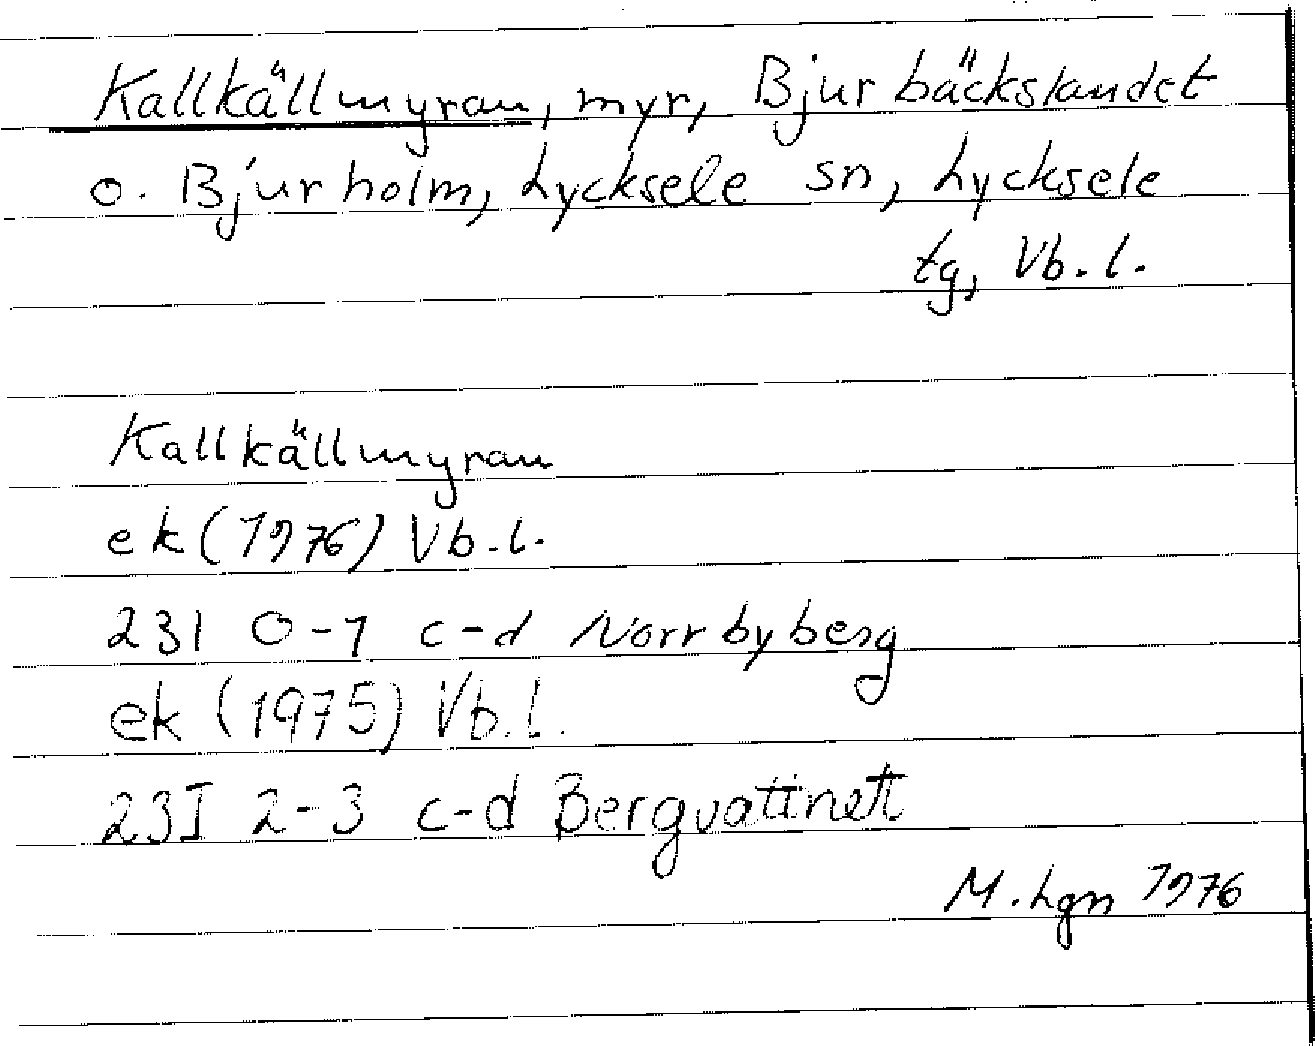 Kallkällmyran, myr, Bjurbäckslandet
o. Bjurholm, Lycksele sn, Lycksele
tg, Vb. l.
Kallkällmyran
ek (1976) Vb. l.
23I 0-1 c-d Norrbyberg
ek (1975) Vb. l.
23I 2-3 c-d Bergvattnet
M. Lgn 1976